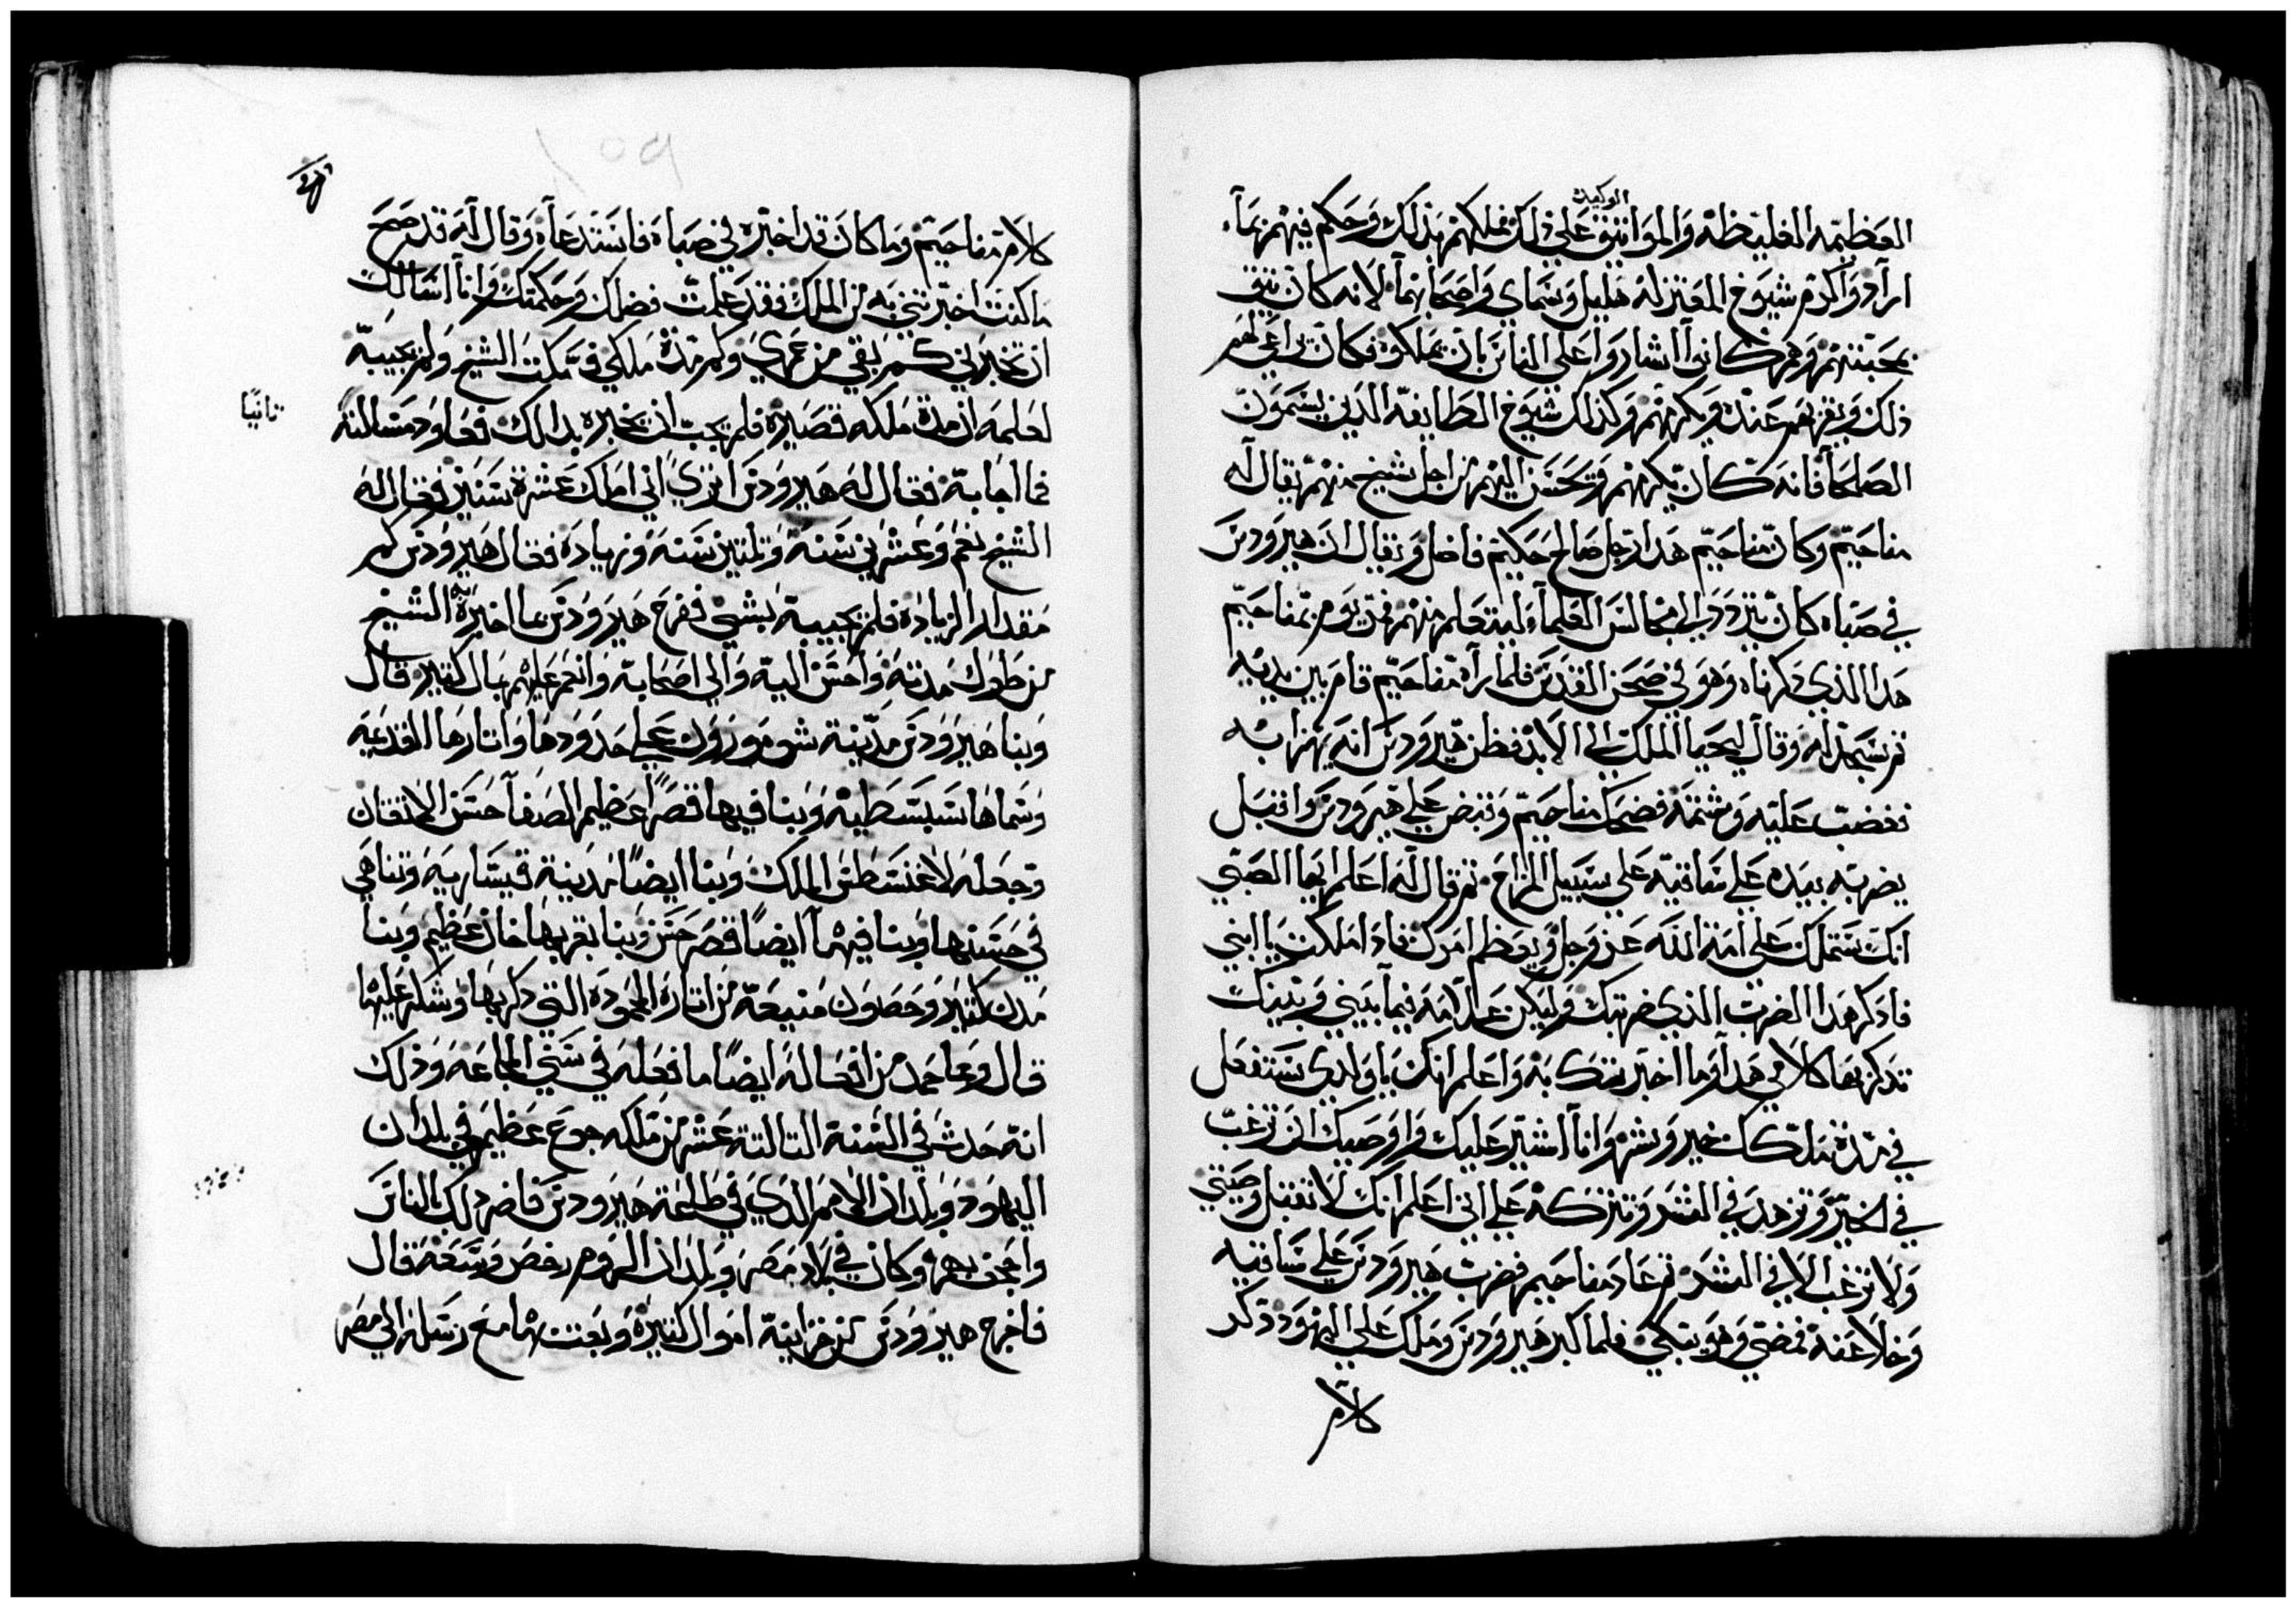 الوكيده
العظيمه الغليظه والمواثيق على ذلك فملكهم بذلك وحكم فيهم بما
اراد واكرم شيوخ المعتزله هليل وشماي واصحابهما لانه كان يثق
بمحبتهم وهم كانوا اشاروا على الناس بان يملكوه فكان يراعي لهم
ذلك ويقربهم عنده ويكرمهم وكذلك شيوخ الطايفه الذين يسمون
الصلحا فانه كان يكرمهم ويحسن اليهم من اجل شيخ منهم يقال له
مناحيم وكان مناحيم هدا رجل صالح حكيم فاضل ويقال ان هيرودس
في صباه كان يتردد الى مجالس العلماء ليتعلم منهم فمر يوم بمناحيم
هدا الذي ذكرناه وهو في صحن القدس فلما راه مناحيم قام بين يديه
ثم سجد له وقال ليحيا الملك الى الابد فظن هيرودس انه يهزا به
فغضب عليه وشتمه فضحك مناحيم وقبض على هيرودس واقبل
يضربه بيده على ساقيه على سبيل المزاح ثم قال له اعلم ايها الصبي
انك ستملك على امة الله عز وجل ويعظم امرك فادا ملكت يا ابني
فادكر هدا الضرب الذي ضربتك وليكن علامه فيما بيني وبينك
تدكر بها كلامي هدا وما اخبرتك به واعلم انك يا ولدي ستفعل
في مدة ملكك خير وشر وانا اشير عليك واوصيك ان ترغب
في الخير وتزهد في الشر وتتركه على اني اعلم انك لا تقبل وصيتي
ولا ترغب الا في الشر ثم عاد مناحيم فضرب هيرودس على ساقيه
وخلا عنه فمضى وهو يبكي فلما كبر هيرودس وملك على اليهود دكر
كلام
كلام مناحيم وما كان قد اخبره في صباه فاستدعاه وقال له قد صح
ما كنت اخبرتني به من الملك فقد علمت فضلك وحكمتك وانا اسالك
ان تخبرني كم بقي من عمري وكم مدة ملكي فسكت الشيخ ولم يجيبه
لعلمه ان مدة ملكه قصيره فلم يحب ان يخبره بدالك فعاود مسالته
ثانيًا
فما اجابه فقال له هيرودس اترى اني املك عشرة سنين فقال له
الشيخ نعم وعشرين سنه وثلثين سنه وزياده فقال هيرودس كم
مقدار الزياده فلم يجيبه بشي ففرح هيرودس بما اخبره به الشيخ
من طول مدته واحسن اليه والى اصحابه وانعم عليهم بمال كثير قال
وبنا هيرودس مدينة شومرون على حدودها واثارها القديمه
وسماها سبسطيه وبنا فيها قصرًا عظيم الصفا حسن الاتقان
وجعله لاغسطس الملك وبنا ايضًا مدينة قيساريه وتناهى
في حسنها وبنا فيهما ايضًا قصر حسن وبنا بقربها خان عظيم وبنا
مدن كثير وحصون منيعه من اثاره المحموده التي دكر بها وشكر عليها
قال ومما حمد من افعاله ايضًا ما فعله في سني المجاعه وذلك
انه حدث في السنة الثالثة عشر من ملكه جوع عظيم في بلدان
اليهود وبلدان الامم الذي في طاعة هيرودس فاضر ذلك بالناس
واجحف بهم وكان في بلاد مصر وبلدان الروم رخص وسعه قال
فاخرج هيرودس من خزاينه اموال كثيره وبعث بها مع رسله الى مصر